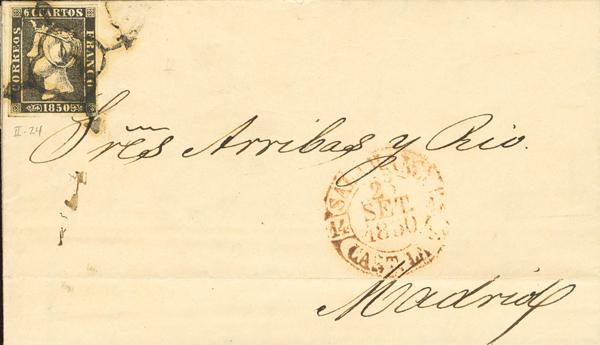 6 CUARTOS
CORREOS
FRANCO
1850
II-24
Sres Arribas y Rio.
SALAMANCA
SET.
1850
14
CAST. LA V.
Madrid